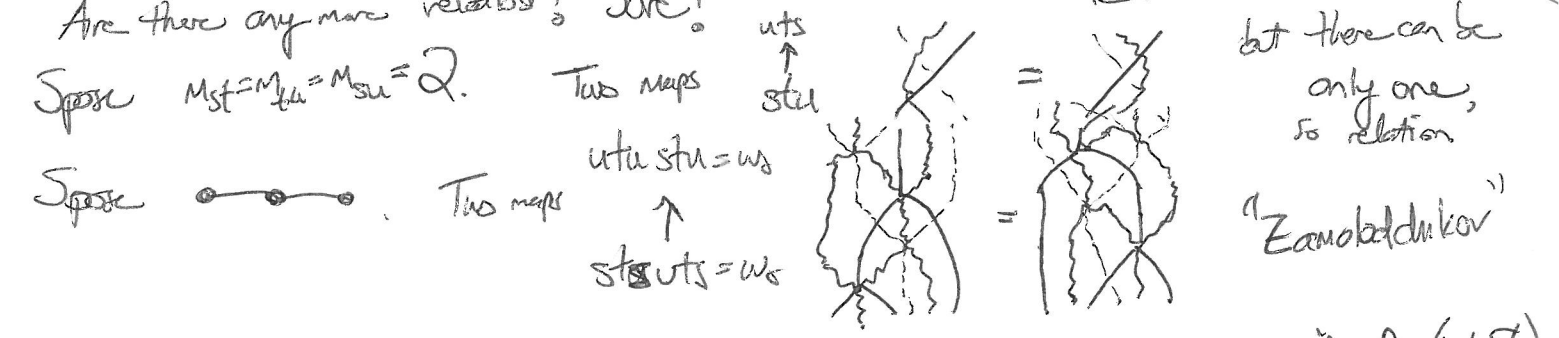 Are there any more relations? Sure!
Spose m_st = m_tu = m_su = 2. Two maps stu → uts = but there can be only one, so relation
Spose . Two maps stsuts = w₀ → utustu = w₀ = "Zamolodchikov"